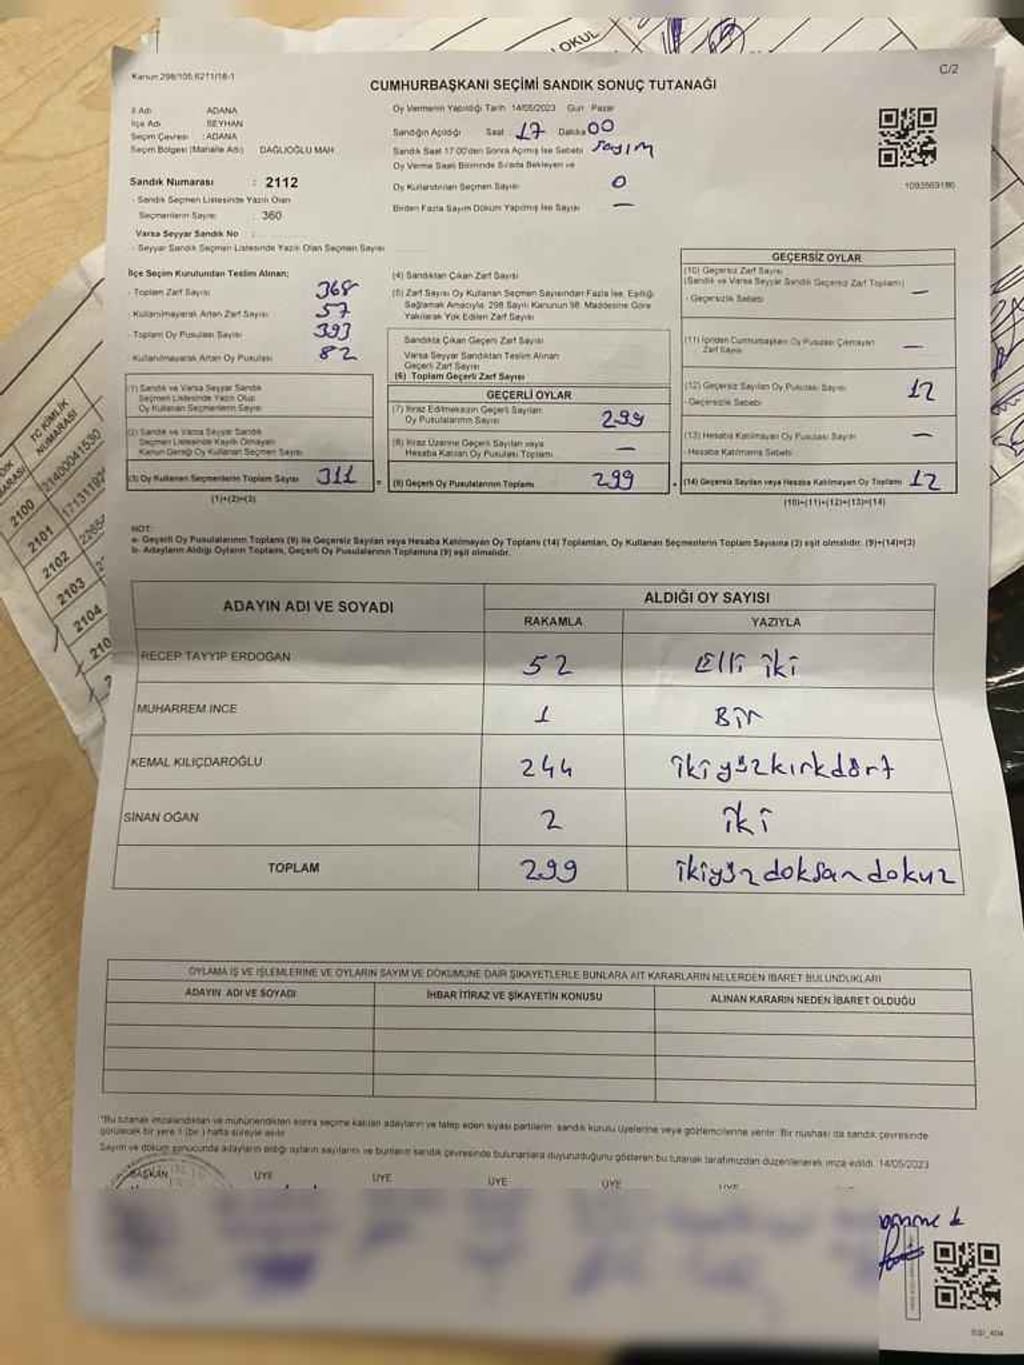 OKUL
Kanun 298/105,6271/18-1
C/2
CUMHURBAŞKANI SEÇİMİ SANDIK SONUÇ TUTANAĞI
İl Adı ADANA
İlçe Adı SEYHAN
Seçim Çevresi : ADANA
Seçim Bölgesi (Mahalle Adı) DAĞLIOĞLU MAH
Oy Vermenin Yapıldığı Tarih 14/05/2023 Gün Pazar
Sandığın Açıldığı Saat 17 Dakika 00
Sandık Saat 17:00'den Sonra Açılmış İse Sebebi Sayım
Oy Verme Saati Bitiminde Sırada Bekleyen ve
Oy Kullandırılan Seçmen Sayısı 0
Birden Fazla Sayım Döküm Yapılmış İse Sayısı —
Sandık Numarası : 2112
- Sandık Seçmen Listesinde Yazılı Olan
Seçmenlerin Sayısı : 360
Varsa Seyyar Sandık No :
- Seyyar Sandık Seçmen Listesinde Yazılı Olan Seçmen Sayısı
İlçe Seçim Kurulundan Teslim Alınan;
- Toplam Zarf Sayısı 368
- Kullanılmayarak Artan Zarf Sayısı 57
- Toplam Oy Pusulası Sayısı 393
- Kullanılmayarak Artan Oy Pusulası 82
(1) Sandık ve Varsa Seyyar Sandık
Seçmen Listesinde Yazılı Olup
Oy Kullanan Seçmenlerin Sayısı
(2) Sandık ve Varsa Seyyar Sandık
Seçmen Listesinde Kayıtlı Olmayan
Kanun Gereği Oy Kullanan Seçmen Sayısı
(3) Oy Kullanan Seçmenlerin Toplam Sayısı 311
(1)+(2)=(3)
(4) Sandıktan Çıkan Zarf Sayısı
(5) Zarf Sayısı Oy Kullanan Seçmen Sayısından Fazla İse, Eşitliği
Sağlamak Amacıyla, 298 Sayılı Kanunun 98. Maddesine Göre
Yakılarak Yok Edilen Zarf Sayısı
Sandıkta Çıkan Geçerli Zarf Sayısı
Varsa Seyyar Sandıktan Teslim Alınan
Geçerli Zarf Sayısı
(6) Toplam Geçerli Zarf Sayısı
GEÇERLİ OYLAR
(7) İtiraz Edilmeksizin Geçerli Sayılan
Oy Pusulalarının Sayısı 299
(8) İtiraz Üzerine Geçerli Sayılan veya
Hesaba Katılan Oy Pusulası Toplamı —
(9) Geçerli Oy Pusulalarının Toplamı 299
GEÇERSİZ OYLAR
(10) Geçersiz Zarf Sayısı
(Sandık ve Varsa Seyyar Sandık Geçersiz Zarf Toplamı) —
- Geçersizlik Sebebi
(11) İçinden Cumhurbaşkanı Oy Pusulası Çıkmayan
Zarf Sayısı —
(12) Geçersiz Sayılan Oy Pusulası Sayısı 12
- Geçersizlik Sebebi
(13) Hesaba Katılmayan Oy Pusulası Sayısı —
- Hesaba Katılmama Sebebi
(14) Geçersiz Sayılan veya Hesaba Katılmayan Oy Toplamı 12
(10)+(11)+(12)+(13)=(14)
NOT:
a- Geçerli Oy Pusulalarının Toplamı (9) ile Geçersiz Sayılan veya Hesaba Katılmayan Oy Toplamı (14) Toplamları, Oy Kullanan Seçmenlerin Toplam Sayısına (3) eşit olmalıdır. (9)+(14)=(3)
b- Adayların Aldığı Oyların Toplamı, Geçerli Oy Pusulalarının Toplamına (9) eşit olmalıdır.
ADAYIN ADI VE SOYADI
ALDIĞI OY SAYISI
RAKAMLA YAZIYLA
RECEP TAYYİP ERDOĞAN 52 Elli iki
MUHARREM İNCE 1 Bir
KEMAL KILIÇDAROĞLU 244 ikiyüzkırkdört
SİNAN OĞAN 2 iki
TOPLAM 299 ikiyüzdoksandokuz
OYLAMA İŞ VE İŞLEMLERİNE VE OYLARIN SAYIM VE DÖKÜMÜNE DAİR ŞİKAYETLERLE BUNLARA AİT KARARLARIN NELERDEN İBARET BULUNDUKLARI
ADAYIN ADI VE SOYADI İHBAR İTİRAZ VE ŞİKAYETİN KONUSU ALINAN KARARIN NEDEN İBARET OLDUĞU
*Bu tutanak imzalandıktan ve mühürlendikten sonra seçime katılan adayların ve talep eden siyasi partilerin, sandık kurulu üyelerine veya gözlemcilerine verilir. Bir nüshası da sandık çevresinde
görülecek bir yere 1 (bir) hafta süreyle asılır.
Sayım ve döküm sonucunda adayların aldığı oyların sayılarını ve bunların sandık çevresinde bulunanlara duyurulduğunu gösteren bu tutanak tarafımızdan düzenlenerek imza edildi. 14/05/2023
BAŞKAN ÜYE ÜYE ÜYE ÜYE ÜYE
TC KİMLİK
NUMARASI
2100
2101
2102
2103
2104